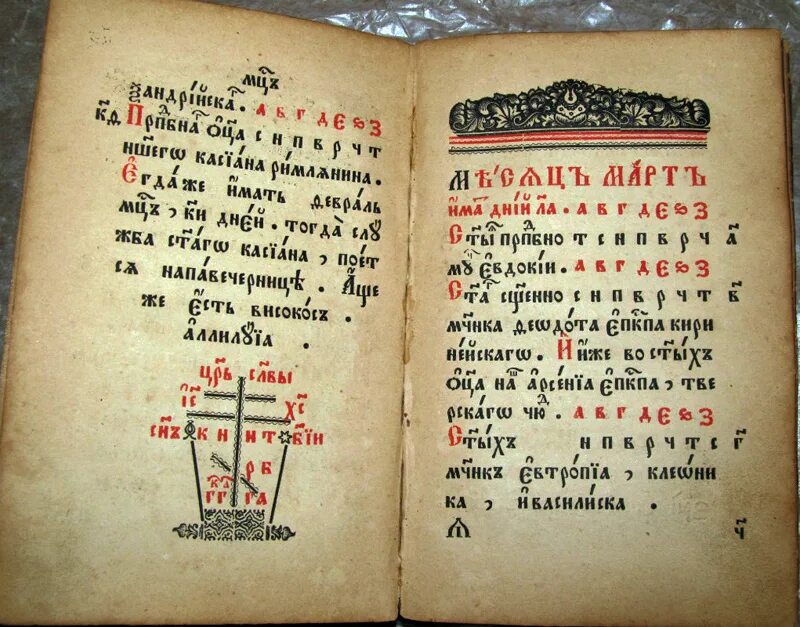 мц҃ъ
ѯандрі́йскаѧ. А В Г Д Е Ѕ З
к҃ѳ Прпⷣбнаⷢ ѻ҆ц҃а с н п в р ч т
ншегѡ касїа́на ри́млѧнина.
Е҆гда́ же и҆́мать ѳевра́ль
мц҃ъ, к҃и дне́й. тогда̀ слꙋ
жба ст҃а́гѡ касїа́на, пое́т
сѧ напа́вечерницѣ. А҆́ще
же є҆́сть високо́съ.
а҆ллилꙋ́їа.
цр҃ь сла́вы
і҆с҃ х҃с
сн҃ъ к н и т бж҃їи
р б
г г г а
МѢ́СѦЦЪ МА́РТЪ
и҆́матⷮь дні́й ла. А В Г Д Е Ѕ З
Ст҃ы́ѧ прпⷣбно т с н п в р ч а҃
мч҃ Е҆ѵдокі́и. А В Г Д Е Ѕ З
Ст҃а́гⷢ сщ҃енно с н п в р ч т в҃
мч҃нка ѳеѡдо́та є҆пⷭ҇кпа кири
не́йскагѡ. И҆́же во ст҃ы́хъ
ѻ҆ц҃а наⷲ҇ арсе́нїа є҆пⷭ҇кпа, тве
рска́гѡ чюⷣ. А В Г Д Е Ѕ З
Ст҃ы́хъ н п в р ч т с г҃
мч҃никъ є҆ѵтро́пїа, клеѡ́ни
ка, и҆ васили́ска.
Ꙗ ч҃